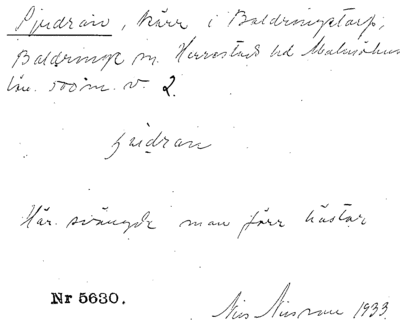 Sjudran, kärr i Baldringetorp,
Baldringe sn. Herrestads hd Malmöhus
län. 500 m. v. 2.
sjudran
Här svängde man förr hästar
Nr 5630.
Nils Nilsson 1933